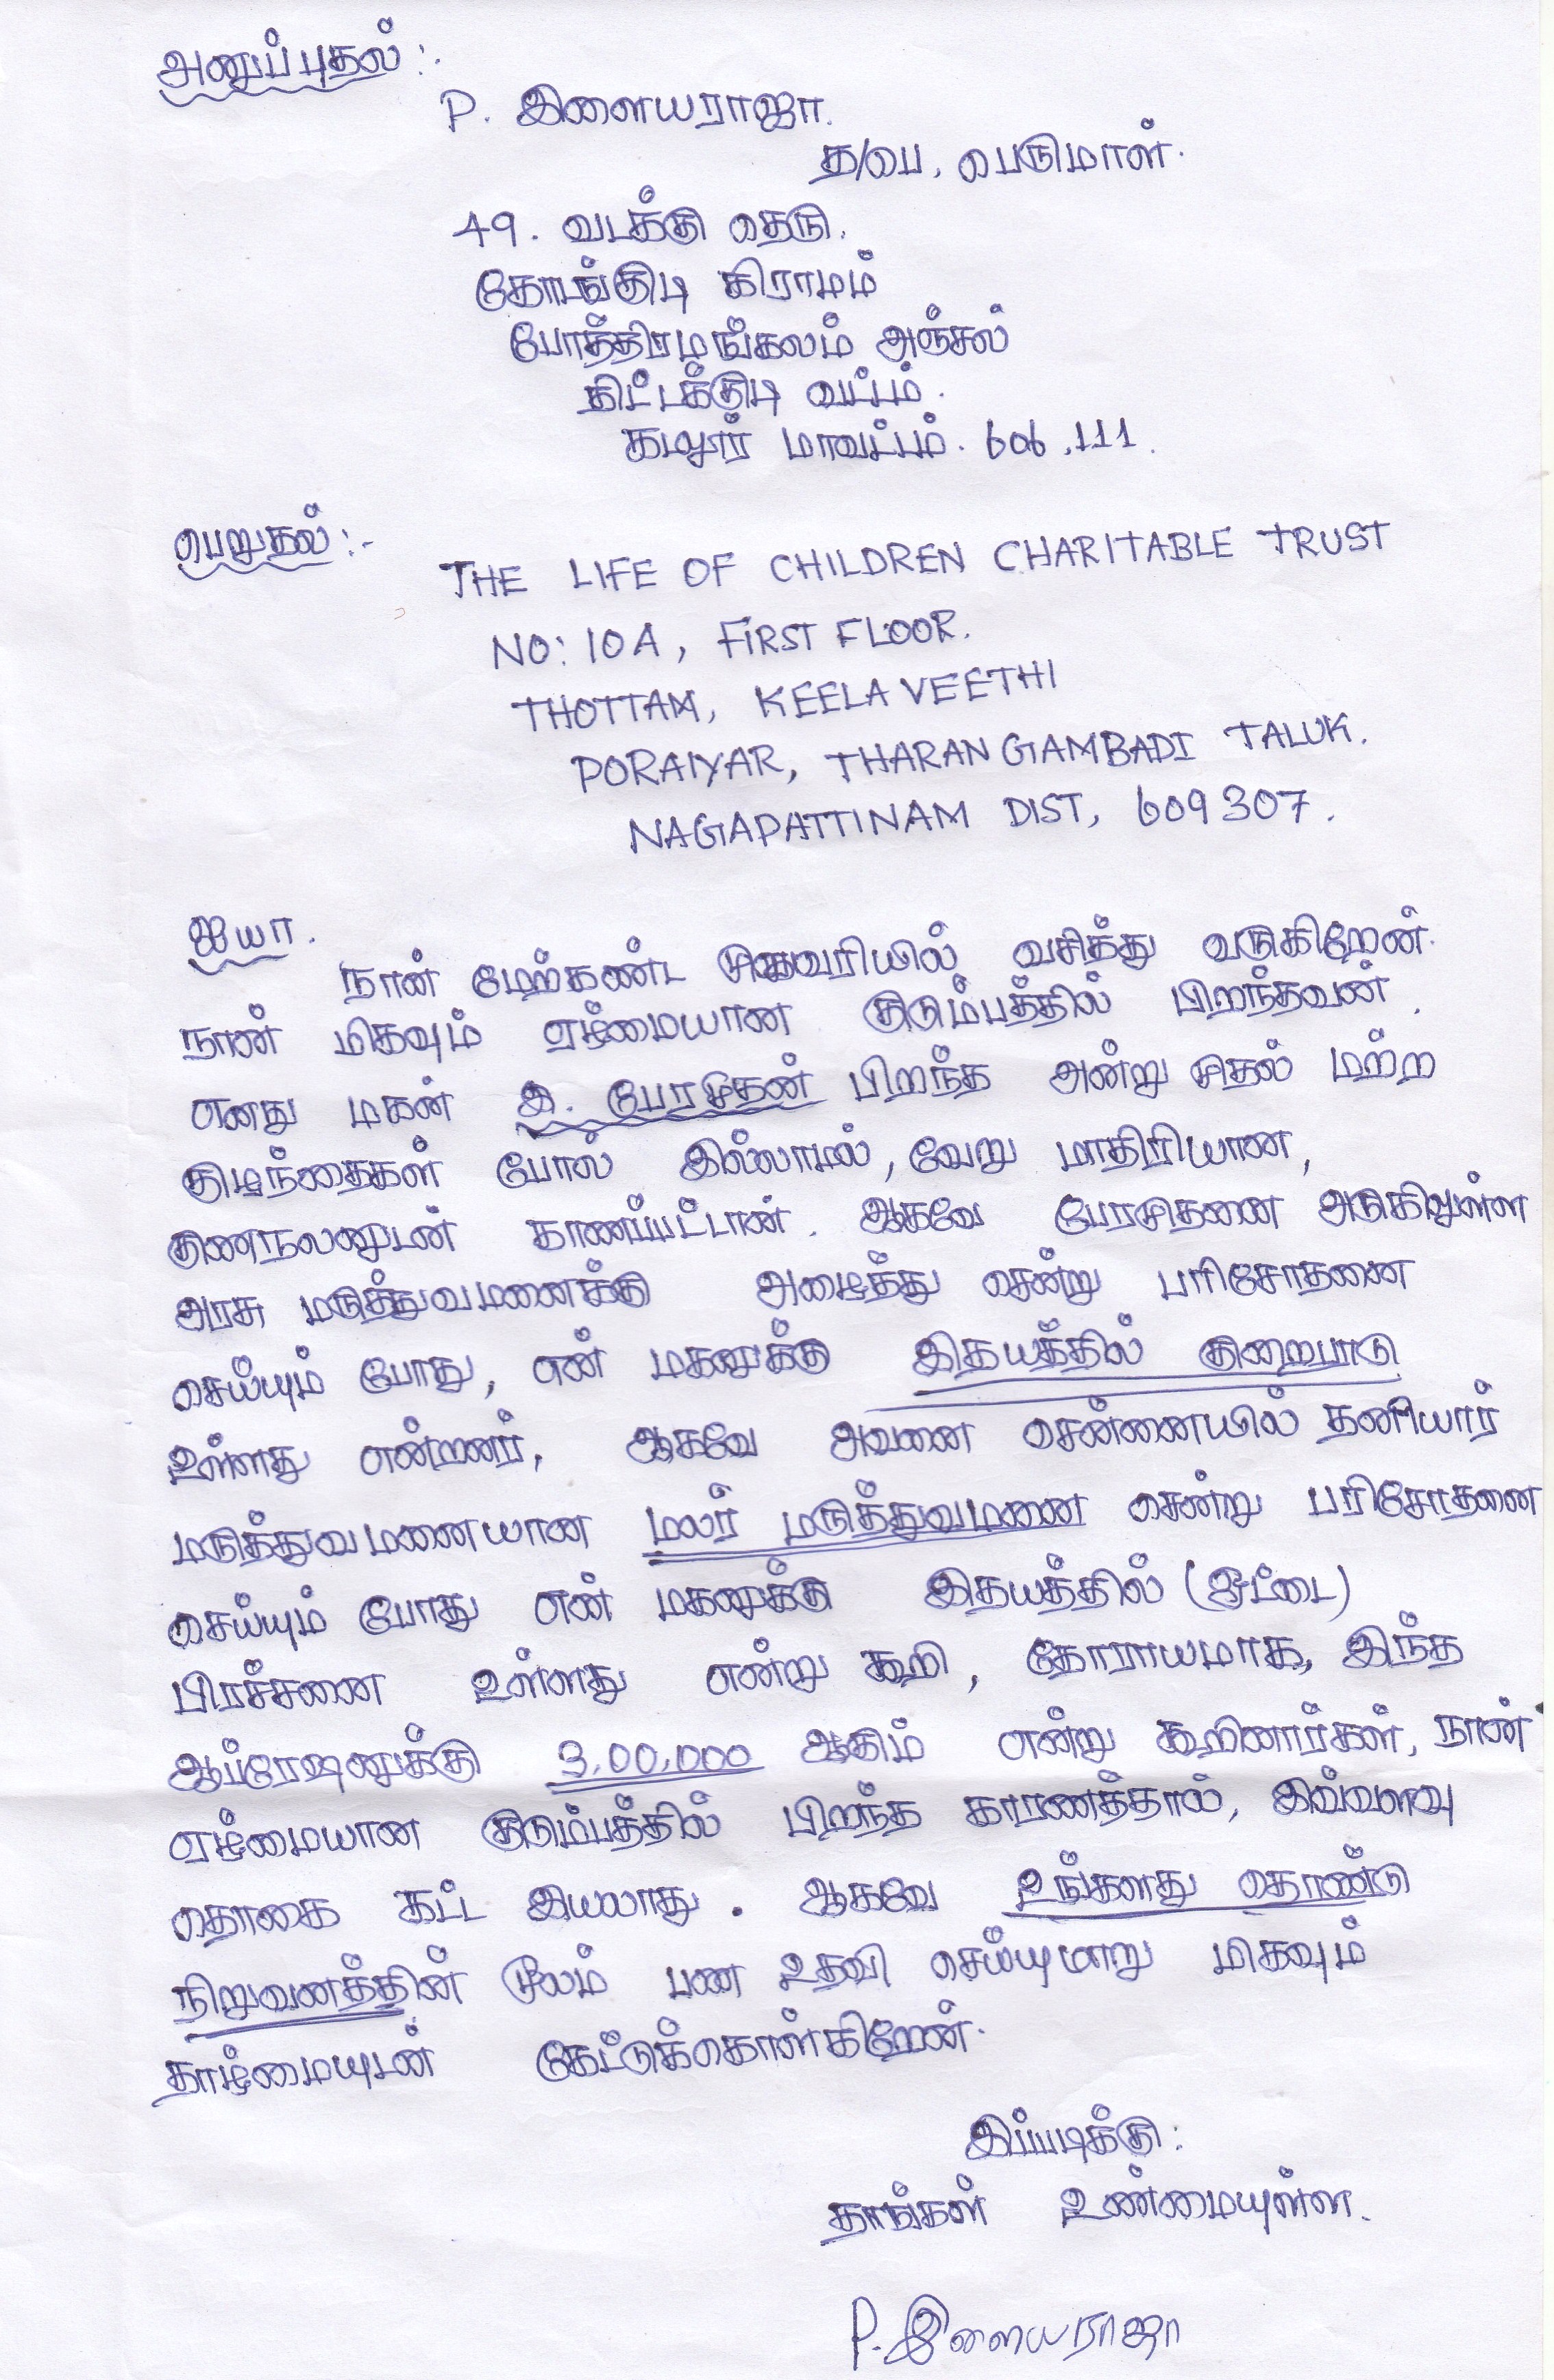 அனுப்புதல் :-
P. இளையராஜா.
த/பெ. பெருமாள்.
49. வடக்கு தெரு.
கோடங்குடி கிராமம்
போத்திரமங்கலம் அஞ்சல்
திட்டக்குடி வட்டம்.
கடலூர் மாவட்டம். 606.111.
பெறுதல் :-
THE LIFE OF CHILDREN CHARITABLE TRUST
NO: 10A, FIRST FLOOR.
THOTTAM, KEELAVEETHI
PORAIYAR, THARANGAMBADI TALUK.
NAGAPATTINAM DIST, 609307.
ஐயா.
நான் மேற்கண்ட முகவரியில் வசித்து வருகிறேன்.
நான் மிகவும் ஏழ்மையான குடும்பத்தில் பிறந்தவன்.
எனது மகன் இ. பேரமுதன் பிறந்த அன்று முதல் மற்ற
குழந்தைகள் போல் இல்லாமல், வேறு மாதிரியான,
குணநலனுடன் காணப்பட்டான். ஆகவே பேரமுதனை அருகிலுள்ள
அரசு மருத்துவமனைக்கு அழைத்து சென்று பரிசோதனை
செய்யும் போது, என் மகனுக்கு இதயத்தில் குறைபாடு
உள்ளது என்றனர். ஆகவே அவனை சென்னையில் தனியார்
மருத்துவமனையான மலர் மருத்துவமனை சென்று பரிசோதனை
செய்யும் போது என் மகனுக்கு இதயத்தில் (ஓட்டை)
பிரச்சனை உள்ளது என்று கூறி, தோராயமாக, இந்த
ஆப்ரேஷனுக்கு 3,00,000 ஆகும் என்று கூறினார்கள், நான்
ஏழ்மையான குடும்பத்தில் பிறந்த காரணத்தால், இவ்வளவு
தொகை கட்ட இயலாது. ஆகவே உங்களது தொண்டு
நிறுவனத்தின் மூலம் பண உதவி செய்யுமாறு மிகவும்
தாழ்மையுடன் கேட்டுக்கொள்கிறேன்.
இப்படிக்கு:
தாங்கள் உண்மையுள்ள.
P. இளையராஜா